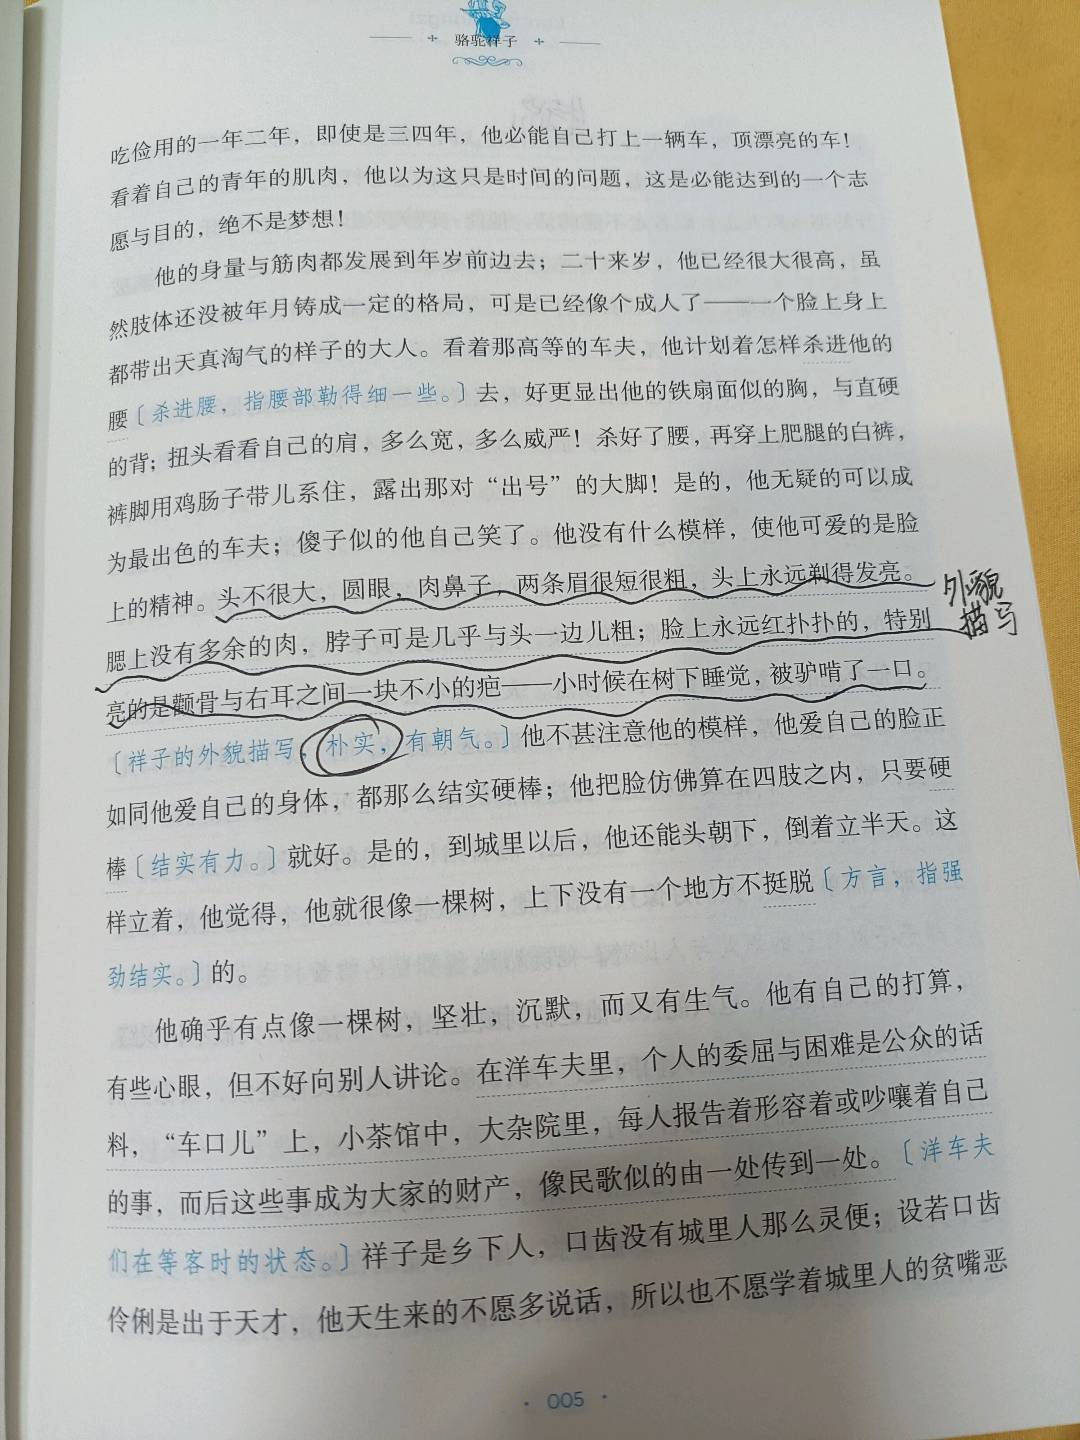 骆驼祥子
吃俭用的一年二年，即使是三四年，他必能自己打上一辆车，顶漂亮的车！
看着自己的青年的肌肉，他以为这只是时间的问题，这是必能达到的一个志
愿与目的，绝不是梦想！
他的身量与筋肉都发展到年岁前边去；二十来岁，他已经很大很高，虽
然肢体还没被年月铸成一定的格局，可是已经像个成人了——一个脸上身上
都带出天真淘气的样子的大人。看着那高等的车夫，他计划着怎样杀进他的
腰〔杀进腰，指腰部勒得细一些。〕去，好更显出他的铁扇面似的胸，与直硬
的背；扭头看看自己的肩，多么宽，多么威严！杀好了腰，再穿上肥腿的白裤，
裤脚用鸡肠子带儿系住，露出那对“出号”的大脚！是的，他无疑的可以成
为最出色的车夫；傻子似的他自己笑了。他没有什么模样，使他可爱的是脸
上的精神。头不很大，圆眼，肉鼻子，两条眉很短很粗，头上永远剃得发亮。
外貌
描写
腮上没有多余的肉，脖子可是几乎与头一边儿粗；脸上永远红扑扑的，特别
亮的是颧骨与右耳之间一块不小的疤——小时候在树下睡觉，被驴啃了一口。
〔祥子的外貌描写，朴实，有朝气。〕他不甚注意他的模样，他爱自己的脸正
如同他爱自己的身体，都那么结实硬棒；他把脸仿佛算在四肢之内，只要硬
棒〔结实有力。〕就好。是的，到城里以后，他还能头朝下，倒着立半天。这
样立着，他觉得，他就很像一棵树，上下没有一个地方不挺脱〔方言，指强
劲结实。〕的。
他确乎有点像一棵树，坚壮，沉默，而又有生气。他有自己的打算，
有些心眼，但不好向别人讲论。在洋车夫里，个人的委屈与困难是公众的话
料，“车口儿”上，小茶馆中，大杂院里，每人报告着形容着或吵嚷着自己
的事，而后这些事成为大家的财产，像民歌似的由一处传到一处。〔洋车夫
们在等客时的状态。〕祥子是乡下人，口齿没有城里人那么灵便；设若口齿
伶俐是出于天才，他天生来的不愿多说话，所以也不愿学着城里人的贫嘴恶
005